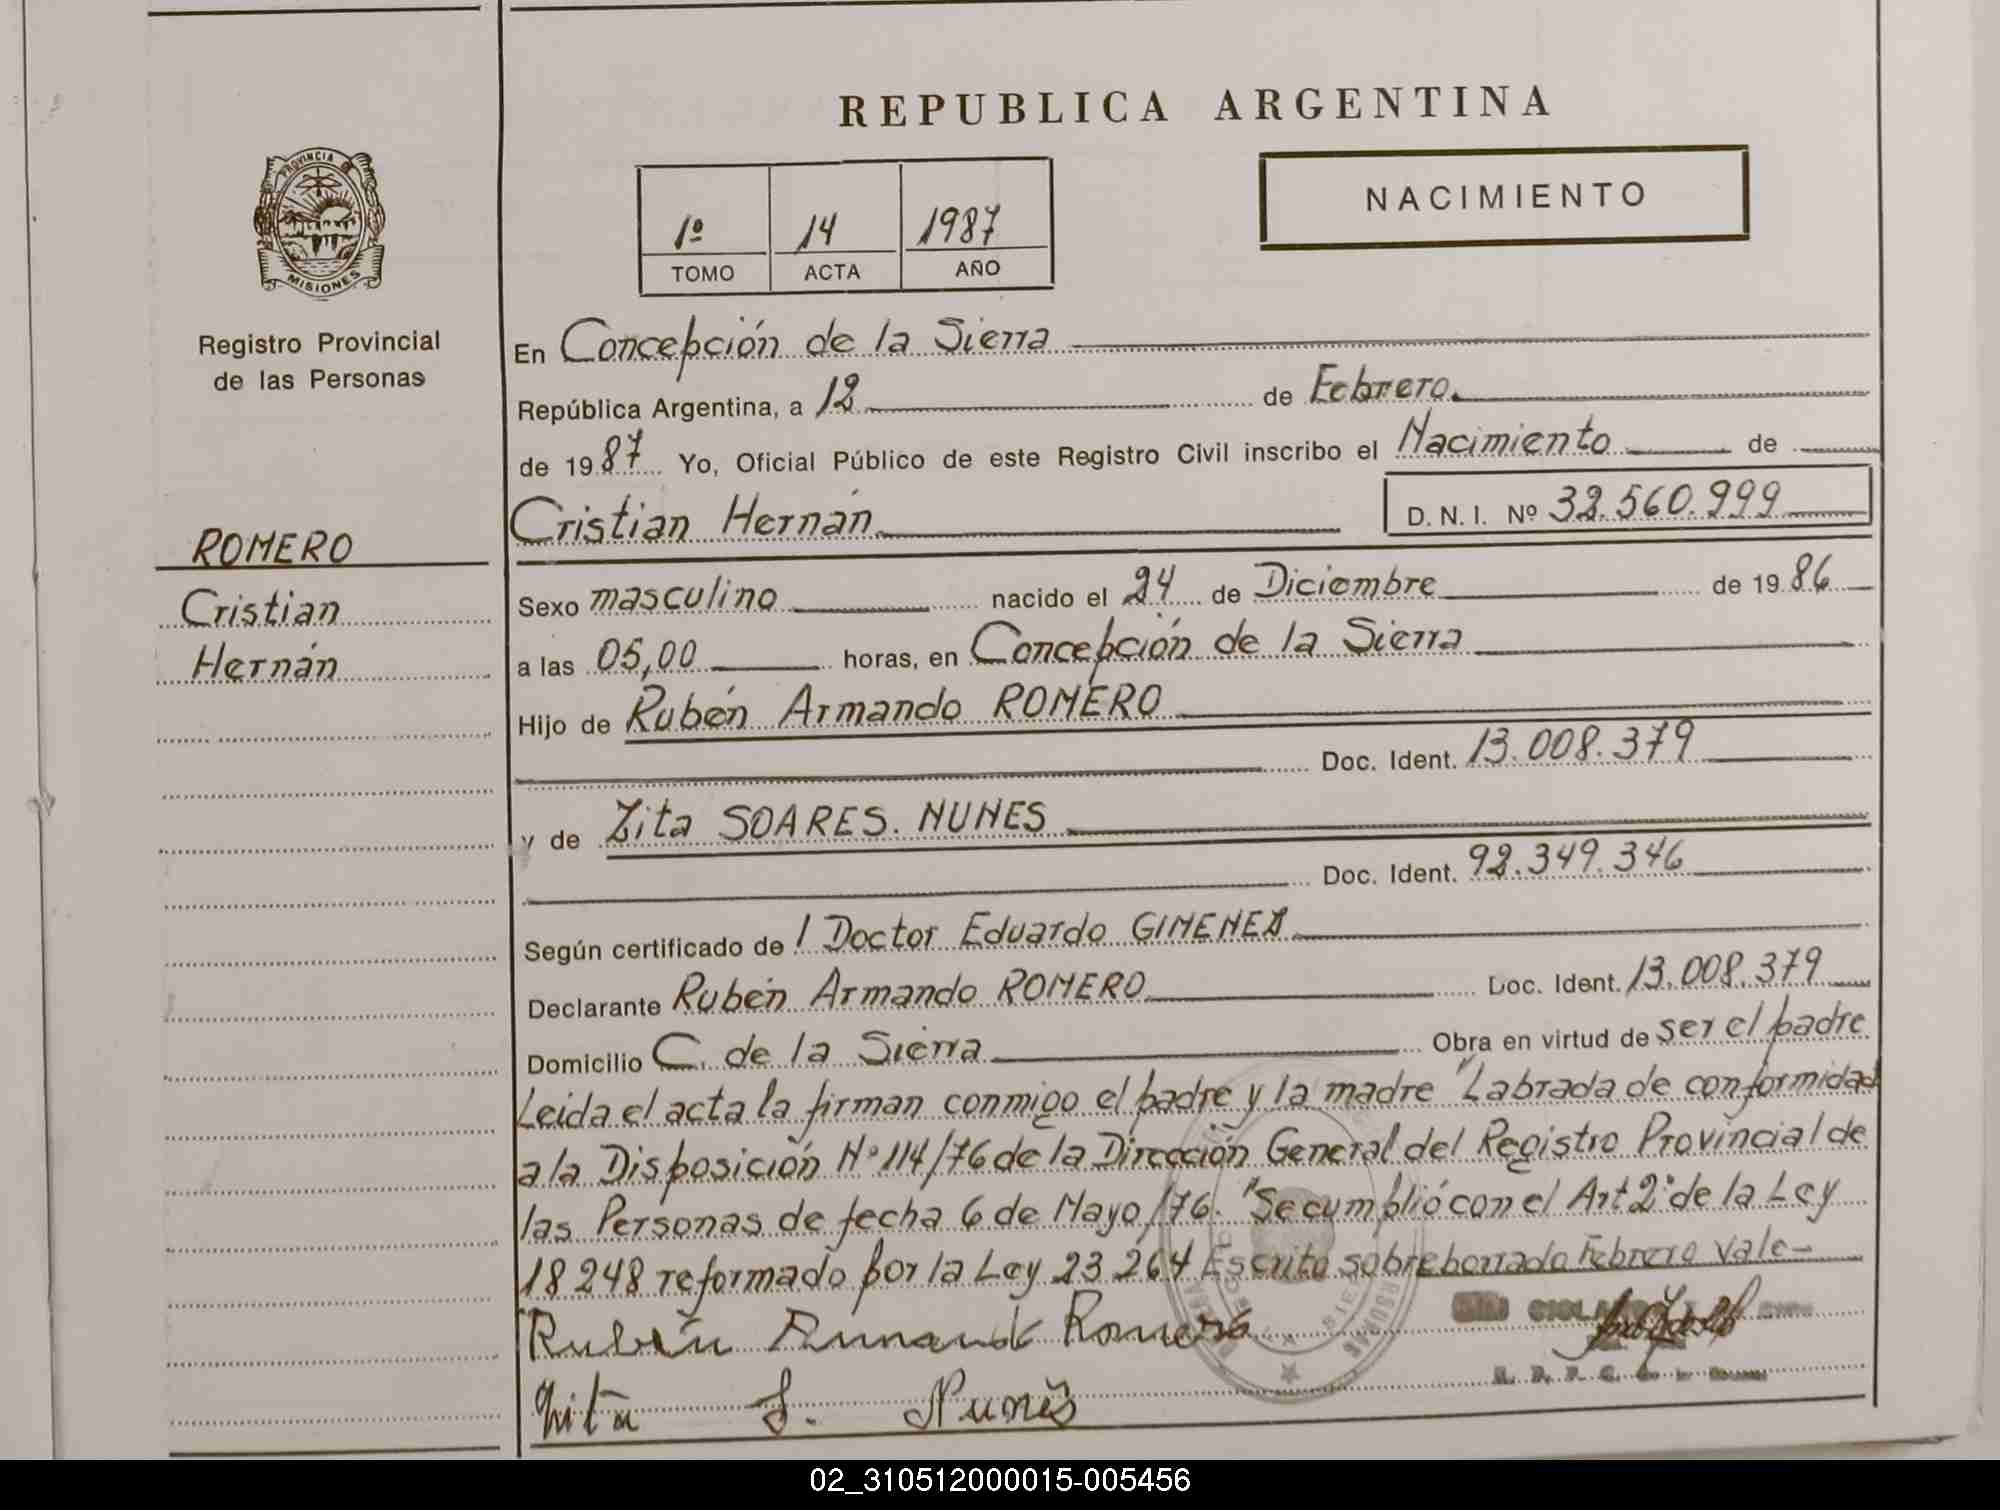 REPUBLICA ARGENTINA
NACIMIENTO
1º 14 1987
TOMO ACTA AÑO
PROVINCIA DE
MISIONES
Registro Provincial
de las Personas
ROMERO
Cristian
Hernán
En Concepción de la Sierra
República Argentina, a 12 de Febrero.
de 1987 Yo, Oficial Público de este Registro Civil inscribo el Nacimiento de
Cristian Hernán D. N. I. Nº 32.560.999
Sexo masculino nacido el 24 de Diciembre de 1986
a las 05,00 horas, en Concepción de la Sierra
Hijo de Rubén Armando ROMERO
Doc. Ident. 13.008.379
y de Zita SOARES. NUNES
Doc. Ident. 92.349.346
Según certificado de l Doctor Eduardo GIMENEZ
Declarante Rubén Armando ROMERO Doc. Ident. 13.008.379
Domicilio C. de la Sierra Obra en virtud de ser el padre
Leída el acta la firman conmigo el padre y la madre "Labrada de conformidad
a la Disposición Nº 114/76 de la Dirección General del Registro Provincial de
las Personas de fecha 6 de Mayo/76. "Se cumplió con el Art 2º de la Ley
18248 reformado por la Ley 23264 Escrito sobreborrado Febrero vale-
Rubén Armando Romero
Zita S. Nunes
02_310512000015-005456